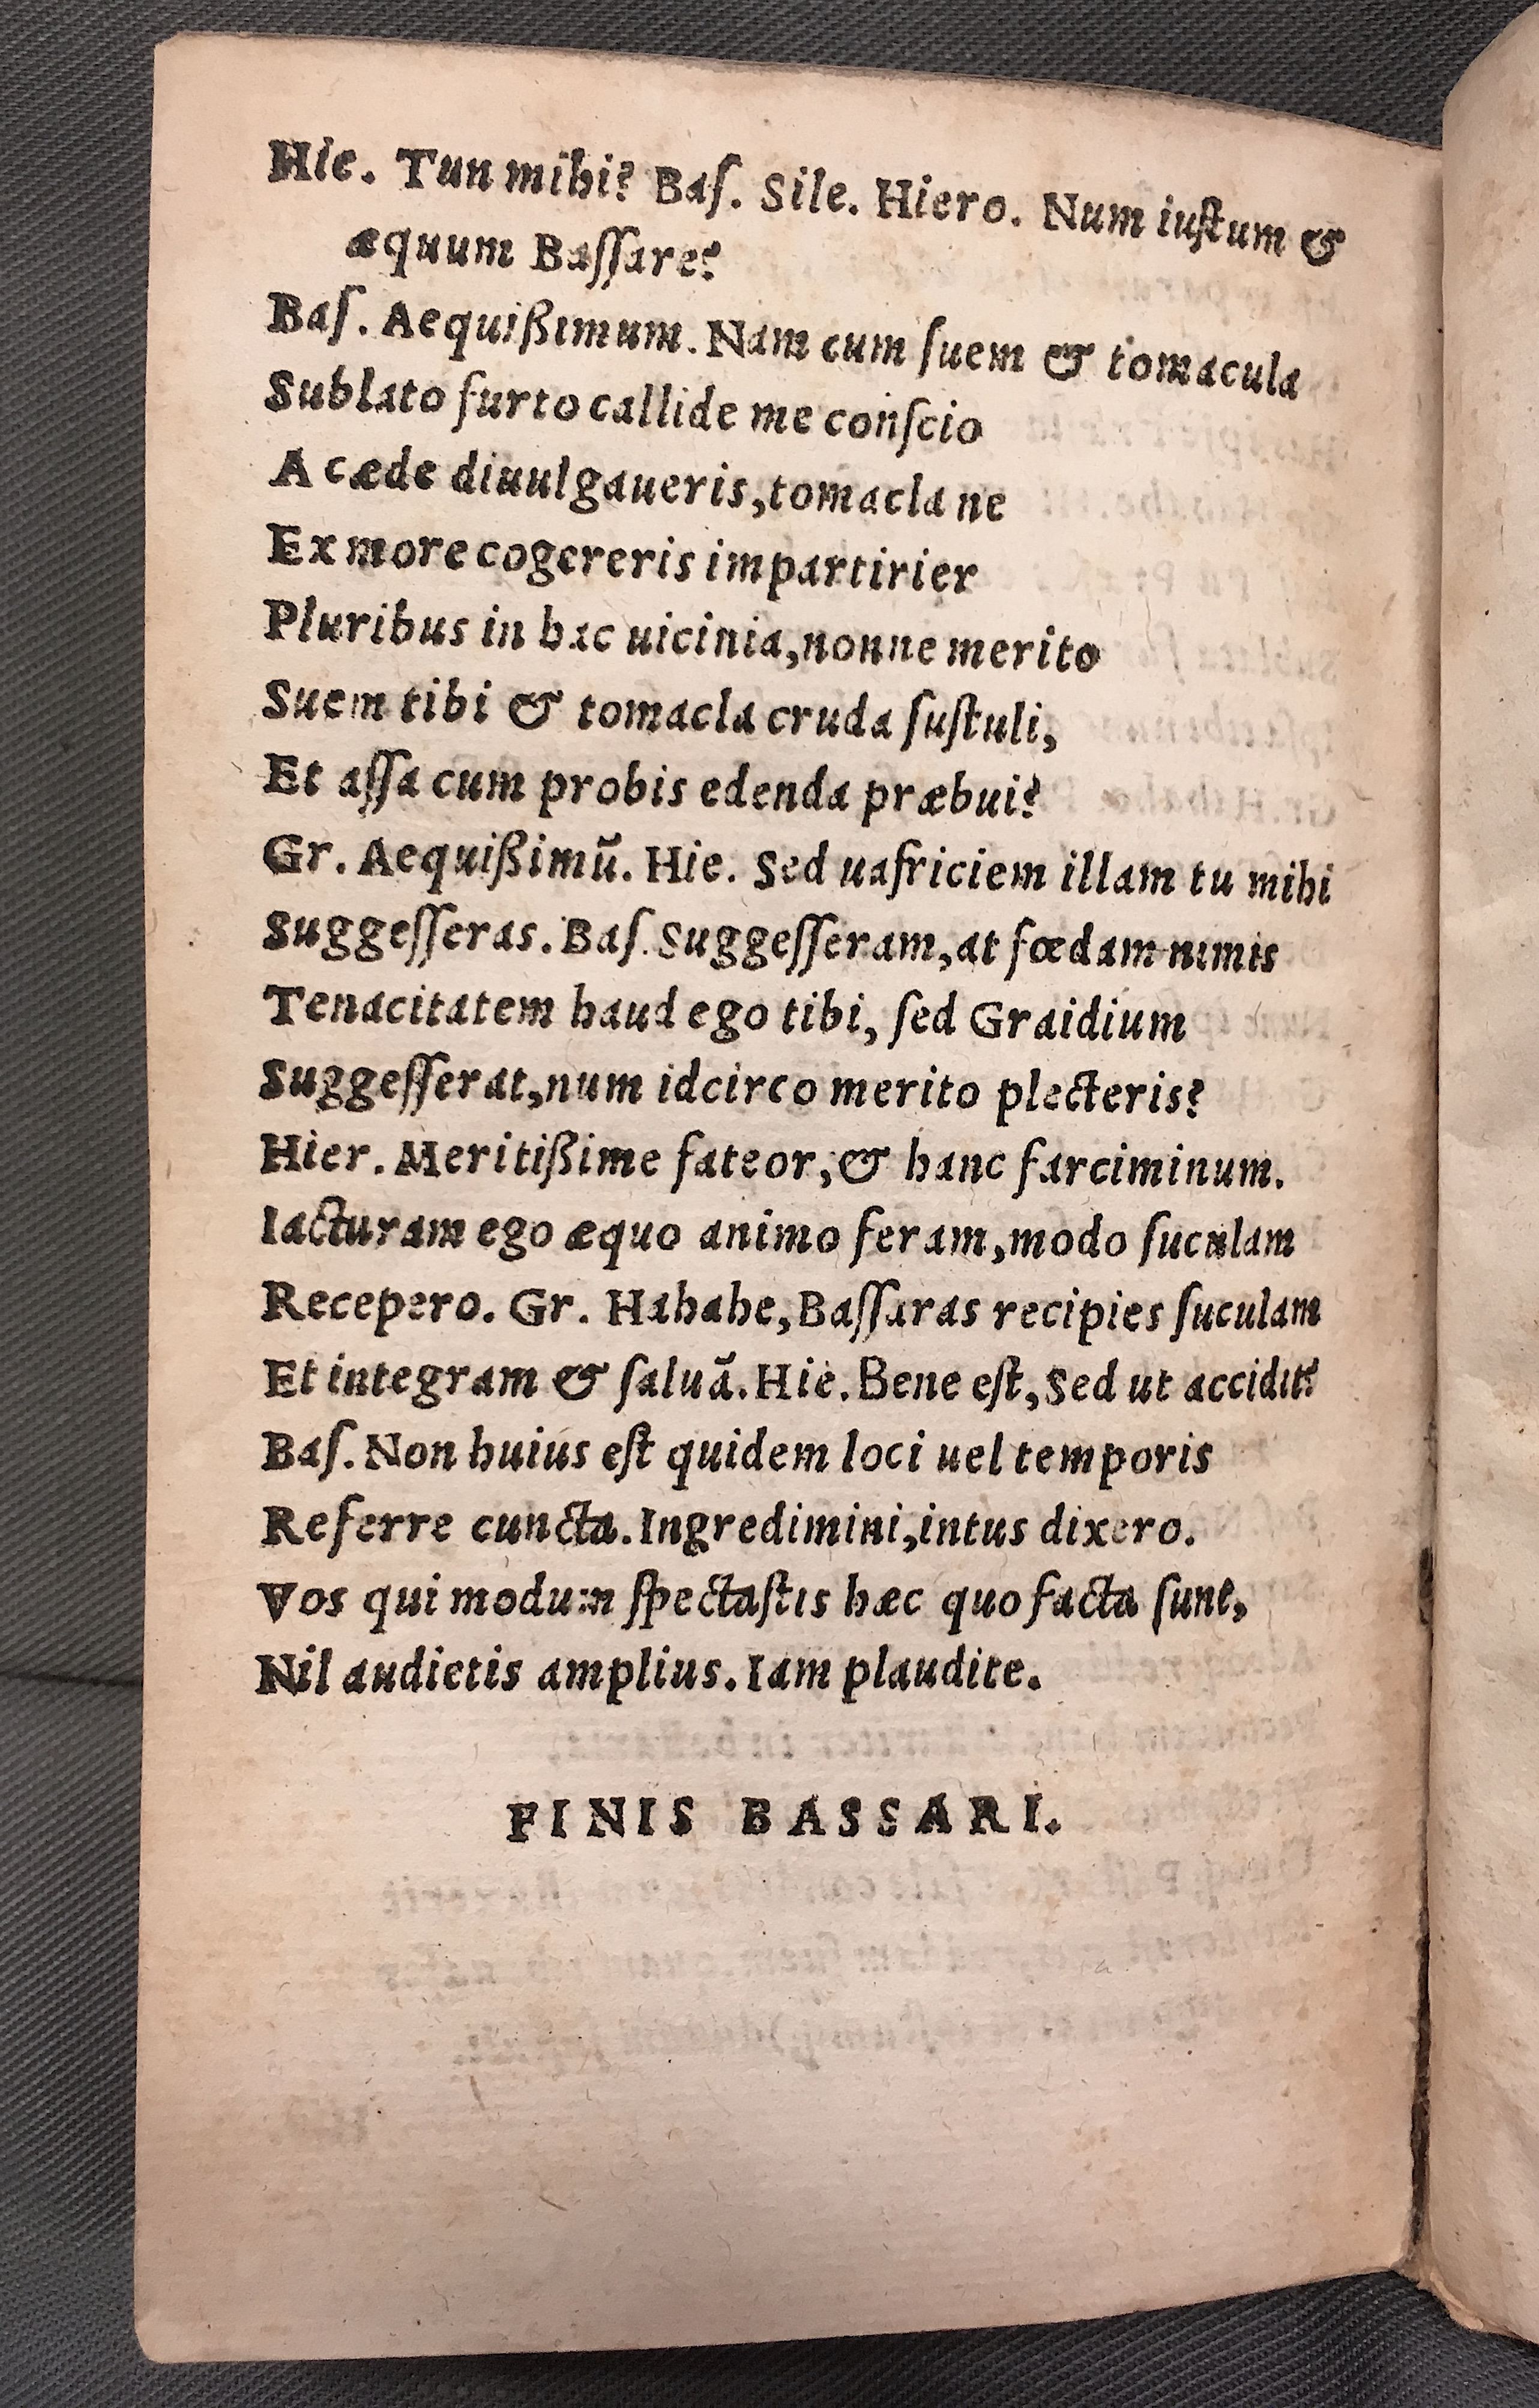 Hie. Tun mihi? Baſ. Sile. Hiero. Num iuſtum &
æquum Baſſare?
Baſ. Aequißimum. Nam cum ſuem & tomacula
Sublato furto callide me conſcio
A cæde diuulgaueris, tomacla ne
Ex more cogereris impartirier
Pluribus in hac uicinia, nonne merito
Suem tibi & tomacla cruda ſuſtuli,
Et aſſa cum probis edenda præbui?
Gr. Aequißimū. Hie. Sed uafriciem illam tu mihi
Suggeſſeras. Baſ. Suggeſſeram, at fœdam nimis
Tenacitatem haud ego tibi, ſed Graidium
Suggeſſerat, num idcirco merito plecteris?
Hier. Meritißime fateor, & hanc farciminum.
Iacturam ego æquo animo feram, modo ſuculam
Recepero. Gr. Hahahe, Baſſaras recipies ſuculam
Et integram & ſaluā. Hie. Bene eſt, Sed ut accidit?
Baſ. Non huius eſt quidem loci uel temporis
Referre cuncta. Ingredimini, intus dixero.
Vos qui modum ſpectaſtis hæc quo facta ſunt,
Nil audietis amplius. Iam plaudite.
FINIS BASSARI.